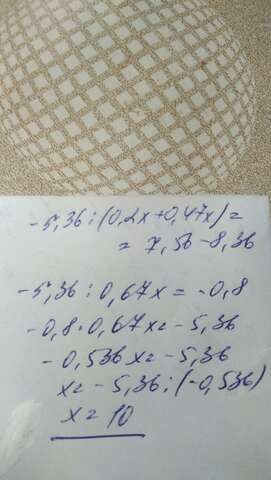 -5,36:(0,2x+0,47x)=
= 7,56-8,36
-5,36:0,67x=-0,8
-0,8·0,67x=-5,36
-0,536x=-5,36
x=-5,36:(-0,536)
x=10